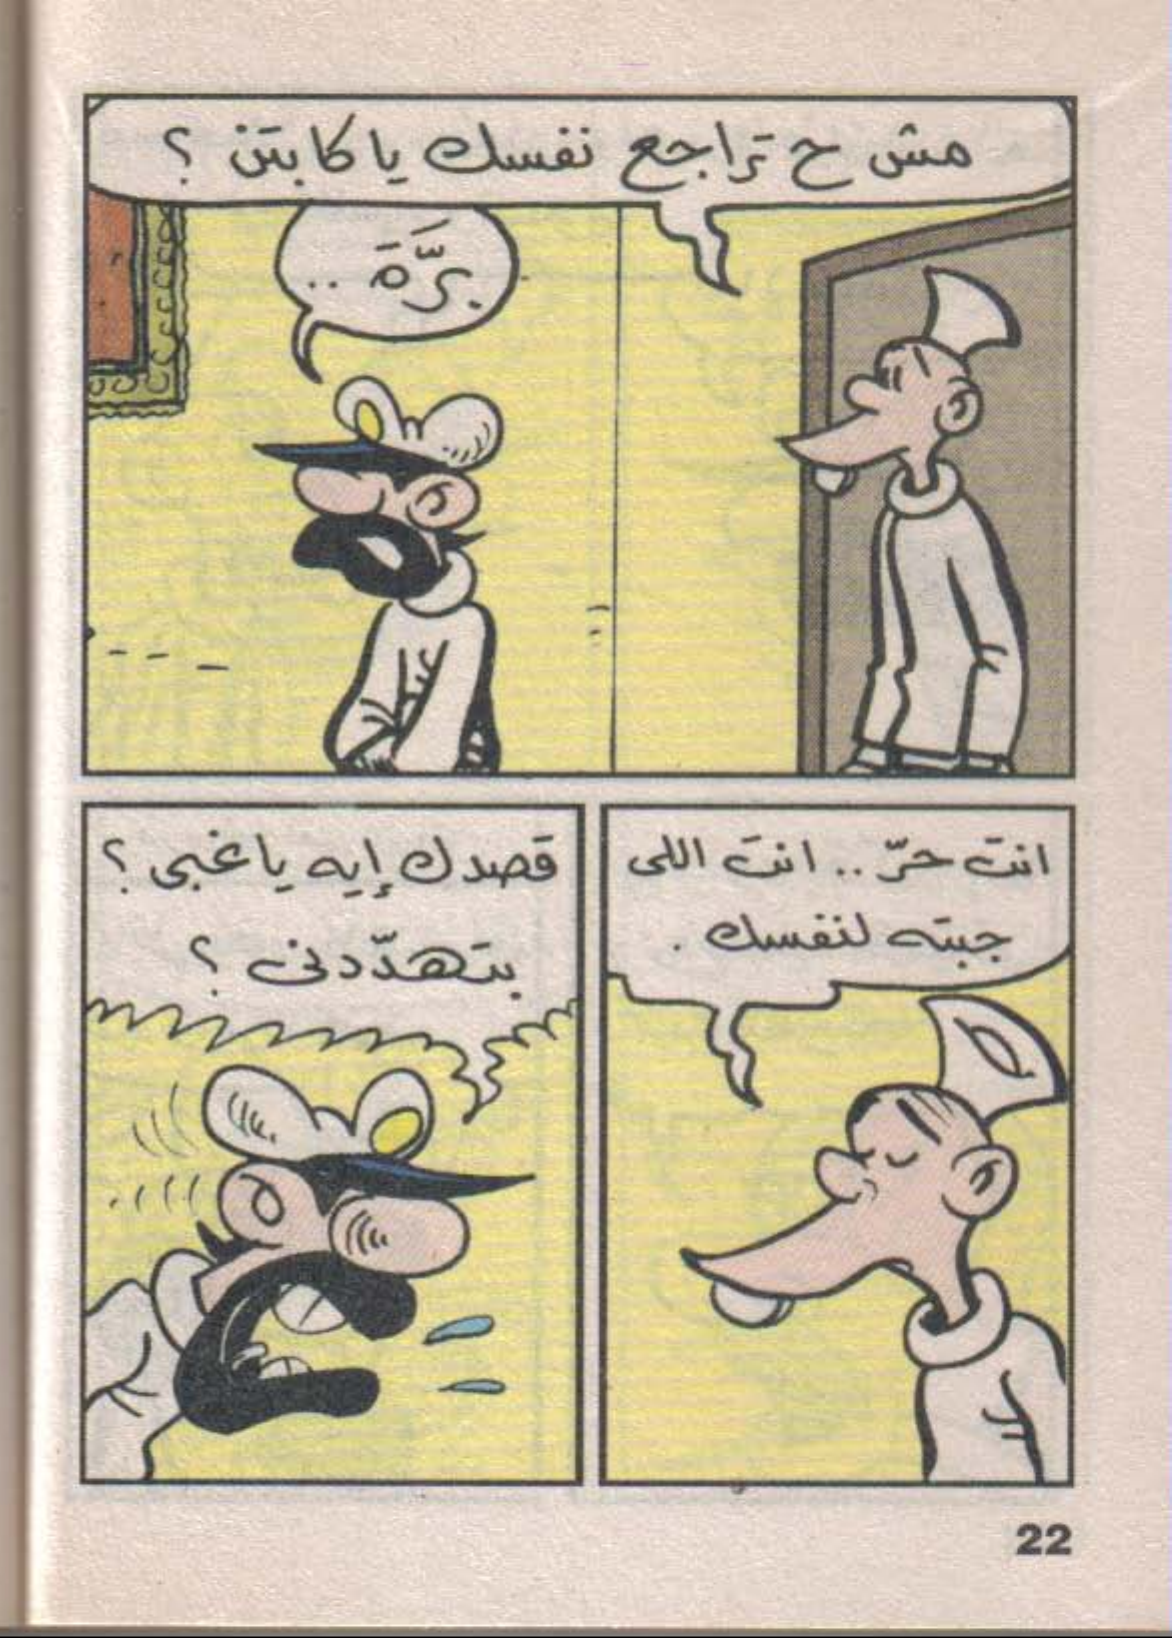 مش ح تراجع نفسك يا كابتن ؟
برَّه ..
انت حرّ .. انت اللى
جبته لنفسك .
قصدك إيه يا غبى ؟
بتهدّدنى ؟
22